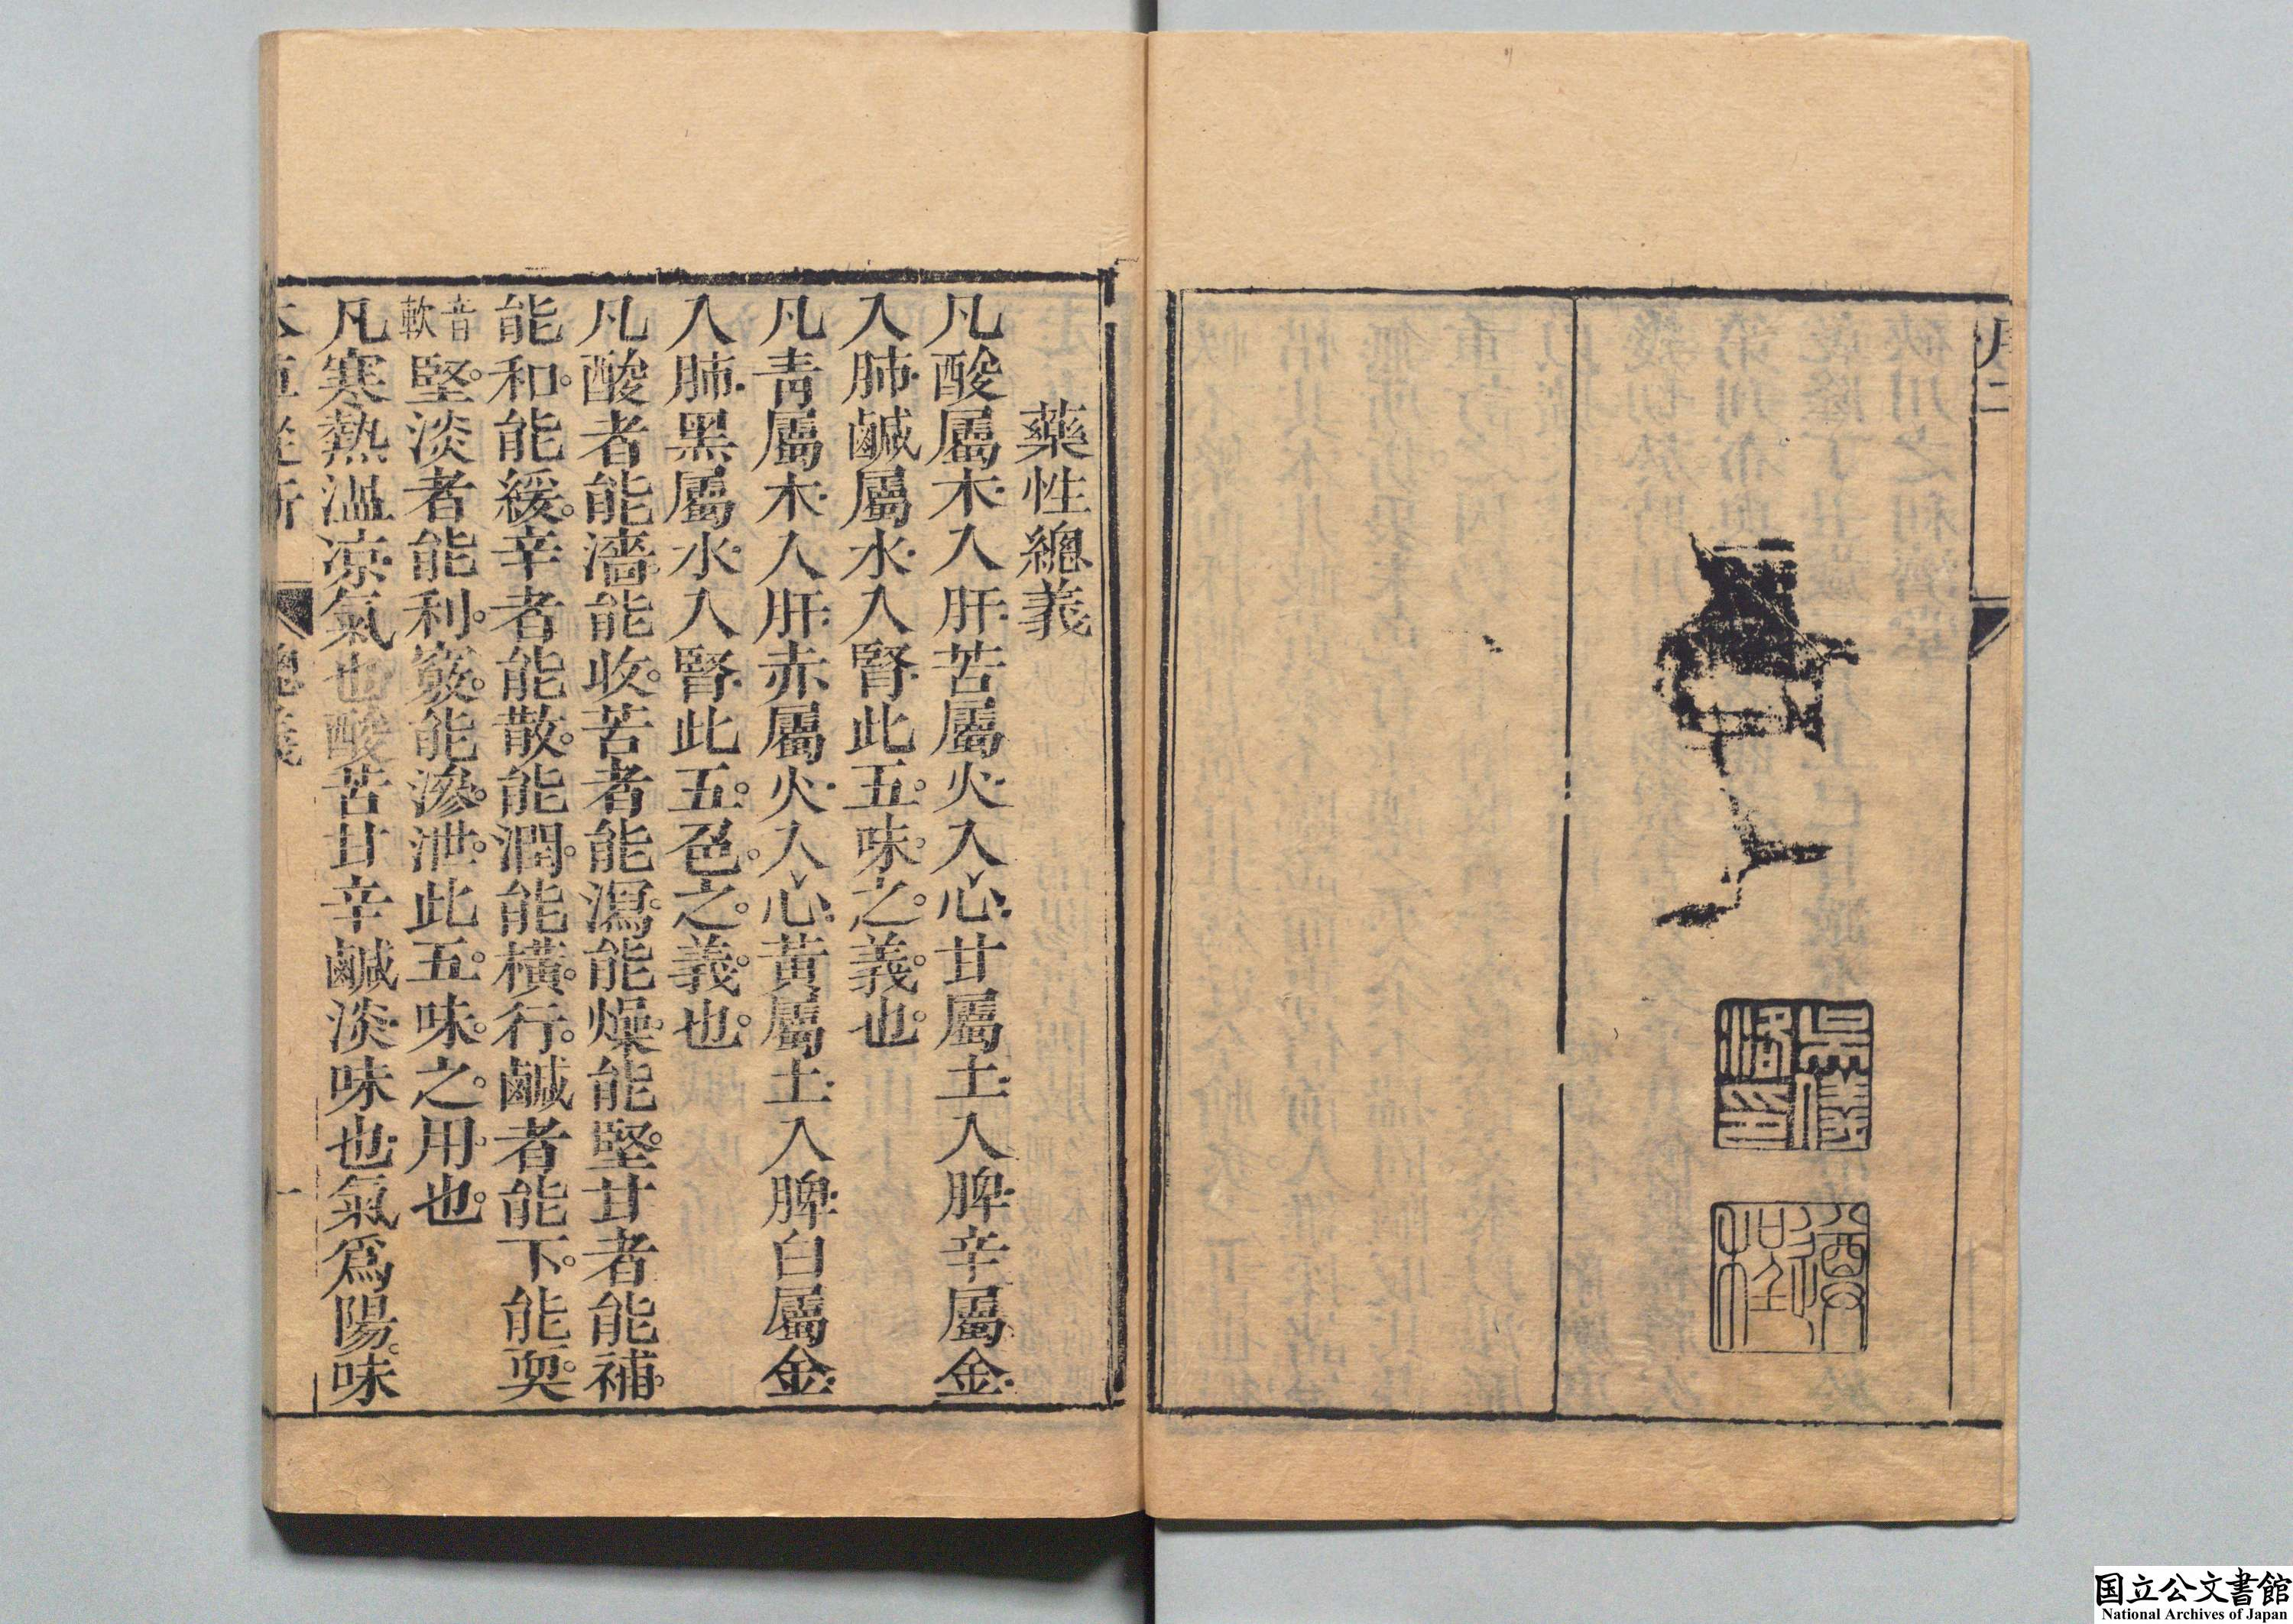 序 二
吳儀洛印
遵程
藥性總義
凡酸屬木入肝苦屬火入心甘屬土入脾辛屬金
入肺鹹屬水入腎此五味之義也
凡靑屬木入肝赤屬火入心黃屬土入脾白屬金
入肺黑屬水入腎此五色之義也
凡酸者能濇能收苦者能瀉能燥能堅甘者能補
能和能緩辛者能散能潤能橫行鹹者能下能耎
音軟堅淡者能利竅能滲泄此五味之用也
凡寒熱溫凉氣也酸苦甘辛鹹淡味也氣爲陽味
本草從新 總義 一
国立公文書館
National Archives of Japan